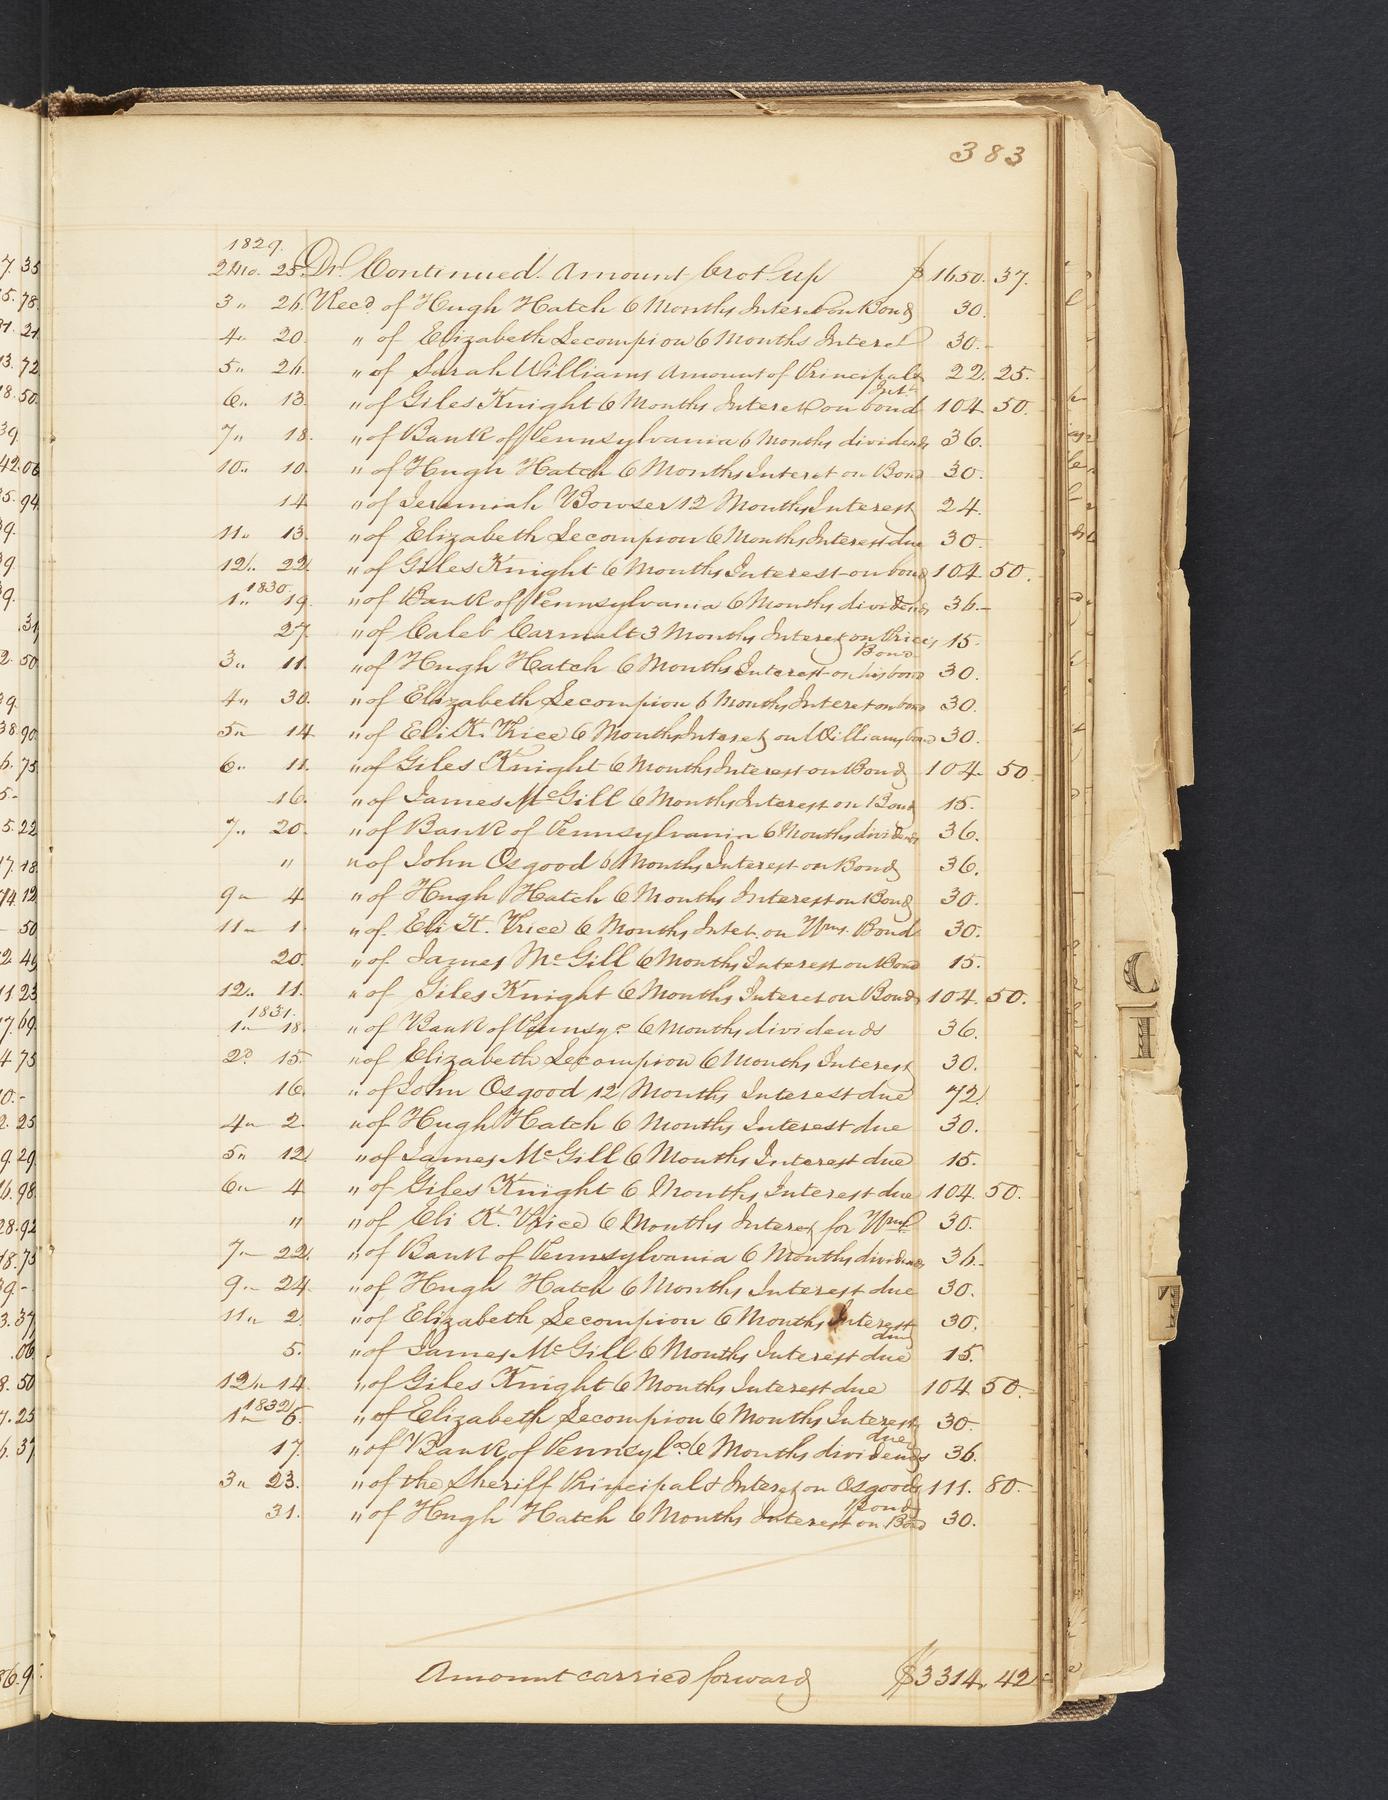 383
1829.
2 Mo. 25. Dr. Continued. Amount brot up $1650. 37.
3 " 26 Recd. of Hugh Hatch 6 Months Interest on Bond 30.
4 " 20. " of Elizabeth Lecompion 6 Months Interest 30.-
5 " 26. " of Sarah Williams Amount of Principal & 22. 25.
Int.
6 " 13. " of Giles Knight 6 Months Interest on bond 104. 50.
7 " 18. " of Bank of Pennsylvania 6 Months dividends 36.
10 " 10. " of Hugh Hatch 6 Months Interest on Bond 30.
14 " of Jeremiah Bowser 12 Months Interest 24.
11 " 13. " of Elizabeth Lecompion 6 Months Interest due 30.
12 " 22 " of Giles Knight 6 Months Interest on bond 104. 50.
1830.
1 " 19. " of Bank of Pennsylvania 6 Months dividends 36.-
27. " of Caleb Carmalt 3 Months Interest on Prices 15.
Bond
3 " 11. " of Hugh Hatch 6 Months Interest on his bond 30.
4 " 30. " of Elizabeth Lecompion 6 Months Interest on bond 30.
5 " 14 " of Eli K. Price 6 Months Interest on Williams bond 30.
6 " 11. " of Giles Knight 6 Months Interest on Bond 104. 50
16. " of James McGill 6 Months Interest on Bond 15.
7 " 20. " of Bank of Pennsylvania 6 Months dividends 36.
" " of John Osgood 6 Months Interest on Bond 36.
9 " 4. " of Hugh Hatch 6 Months Interest on Bond 30.
11 " 1. " of Eli K. Price 6 Months Intet. on Wms. Bond 30.
20. " of James McGill 6 Months Interest on Bond 15.
12 " 11. " of Giles Knight 6 Months Interest on Bond 104. 50.
1831.
1 " 18. " of Bank of Pennsya 6 Months dividends 36.
2 " 15. " of Elizabeth Lecompion 6 Months Interest 30.
16. " of John Osgood 12 Months Interest due 72
4 " 2. " of Hugh Hatch 6 Months Interest due 30.
5 " 12 " of James McGill 6 Months Interest due 15.
6 " 4 " of Giles Knight 6 Months Interest due 104. 50.
" " of Eli K. Price 6 Months Interest for Wms 30.
7 " 22. " of Bank of Pennsylvania 6 Months dividends 36.
9 " 24. " of Hugh Hatch 6 Months Interest due 30.
11 " 2 " of Elizabeth Lecompion 6 Months Interest 30.
due
5. " of James McGill 6 Months Interest due 15.
12 " 14. " of Giles Knight 6 Months Interest due 104. 50.
1832
1 " 5. " of Elizabeth Lecompion 6 Months Interest 30.
due
17. " of Bank of Pennsyla 6 Months dividends 36.
3 " 23. " of the Sheriff Principal & Interest on Osgoods 111. 80.
Bond
31. " of Hugh Hatch 6 Months Interest on Bond 30.
Amount carried forward $3314. 42
C
I
T